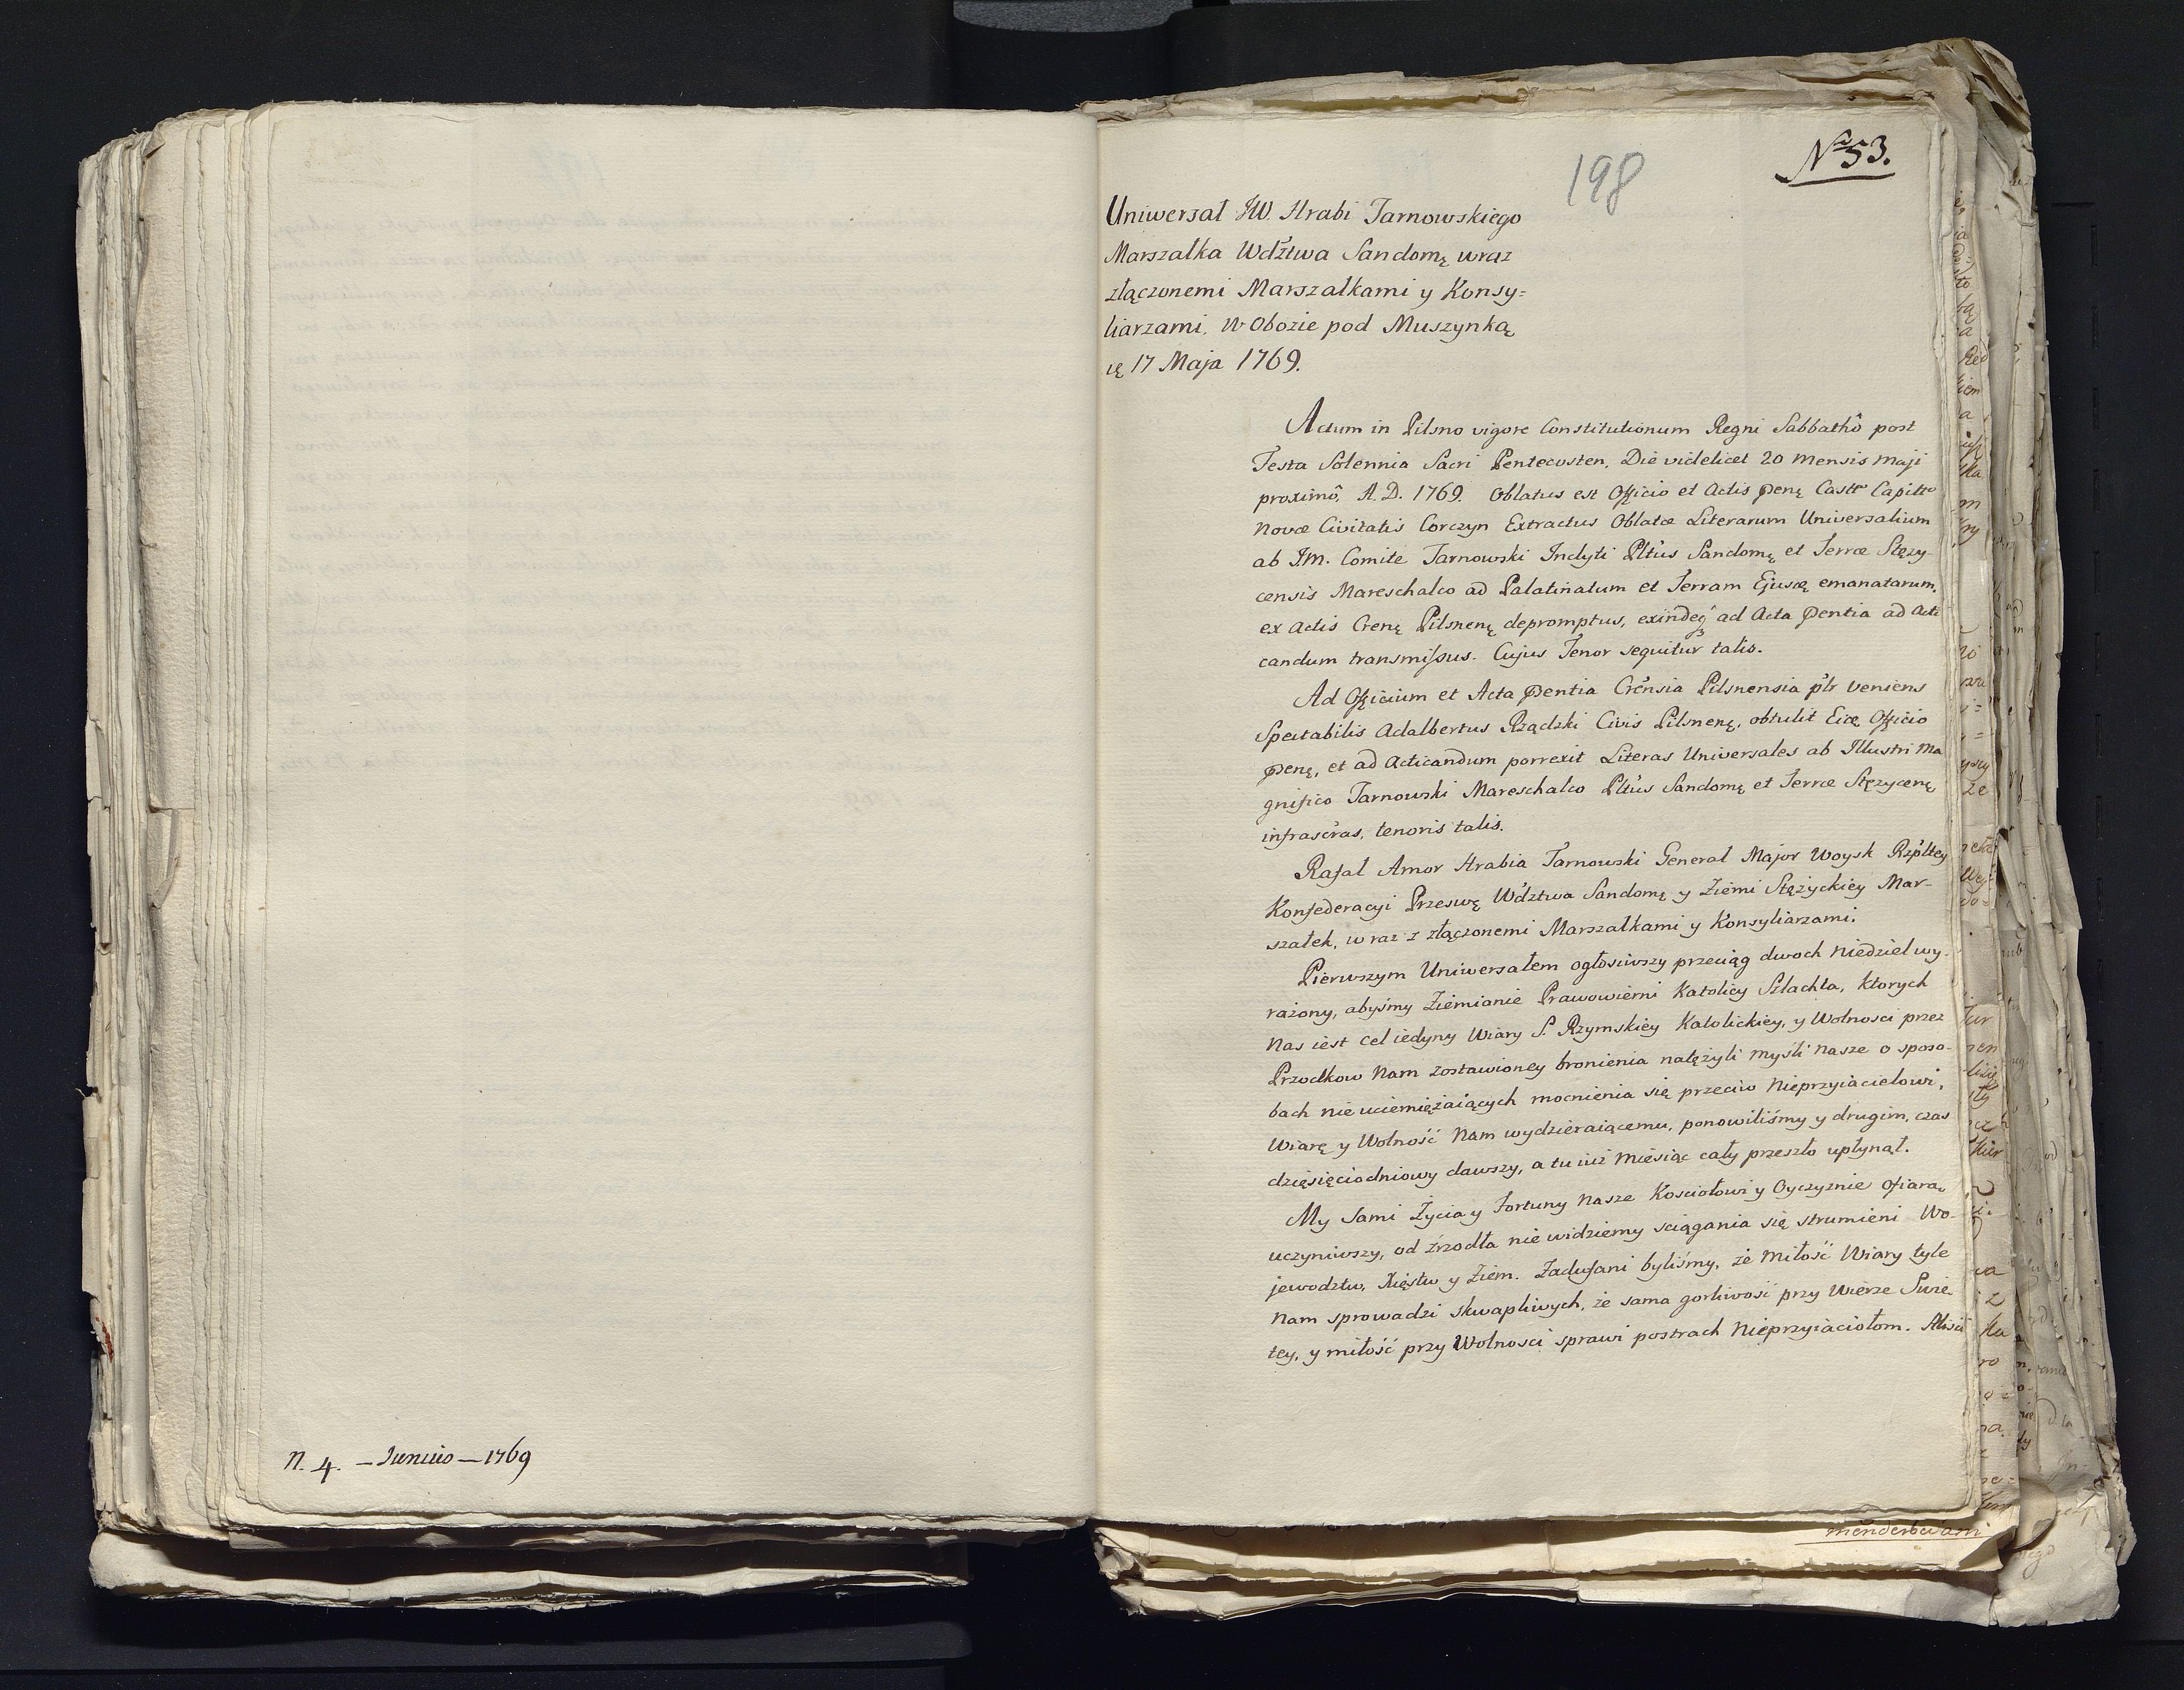 n. 4. – Junius – 1769
198
No 53.
Uniwersał JW. Hrabi Tarnowskiego
Marszałka Wdztwa Sandomę wraz
złączonemi Marszałkami y Konsy=
liarzami, w Obozie pod Muszynką
17 Maja 1769.
Actum in Pilsno vigore Constitutionum Regni Sabbathô post
Festa Solennia Sacri Pentecosten, Die videlicet 20 Mensis Maji
proximô, A. D. 1769. Oblatus est Officio et Actis penę Castr Capitt
Novæ Civitatis Corczyn Extractus Oblatæ Literarum Universalium
ab JM. Comite Tarnowski Inclyti Pltus Sandomę et Terræ Stęzy-
censis Mareschalco ad Palatinatum et Terram Ejusdę emanatarum,
ex Actis Crenę Pilsnenę depromptus, exindeq ad Acta pentia ad Acti
candum transmissus. Cujus Tenor sequitur talis.
Ad Officium et Acta pentia Crensia Pilsnensia plr veniens
Spectabilis Adalbertus Rządzki Civis Pilsnenę, obtulit Eidę Officio
penę, et ad Acticandum porrexit Literas Universales ab Illustri Ma
gnifico Tarnowski Mareschalco Pltus Sandomę et Terræ Stęzycenę
infrascras, tenoris talis.
Rafał Amor Hrabia Tarnowski Generał Major Woysk Rzpltey
Konfederacyi Przeswę Wdztwa Sandomę y Ziemi Stężyckiey Mar-
szałek, wraz z złączonemi Marszałkami y Konsyliarzami.
Pierwszym Uniwersałem ogłosiwszy przeciąg dwoch Niedziel wy-
rażony, abyśmy Ziemianie Prawowierni Katolicy Szlachta, ktorych
Nas iest cel iedyny Wiary S. Rzymskiey Katolickiey, y Wolnosci przez
Przodkow Nam zostawioney bronienia natężyli myśli nasze o sposo-
bach nie uciemiężaiących mocnienia się przeciw Nieprzyiacielowi,
Wiarę y Wolność Nam wydzieraiącemu, ponowiliśmy y drugim, czas
dzięsięciodniowy dawszy, a tu iuż Miesiąc cały przeszło upłynął.
My Sami Życia y Fortuny Nasze Kosciołowi y Oyczyznie ofiarą
uczyniwszy, od źrzodła nie widziemy sciągania się strumieni Wo-
jewodztw, Xięstw y Ziem. Zadufani byliśmy, że Miłość Wiary tyle
Nam sprowadzi skwapliwych, że sama gorliwość przy Wierze Swię
tey, y miłość przy Wolnosci sprawi postrach Nieprzyiaciołom. Aliści